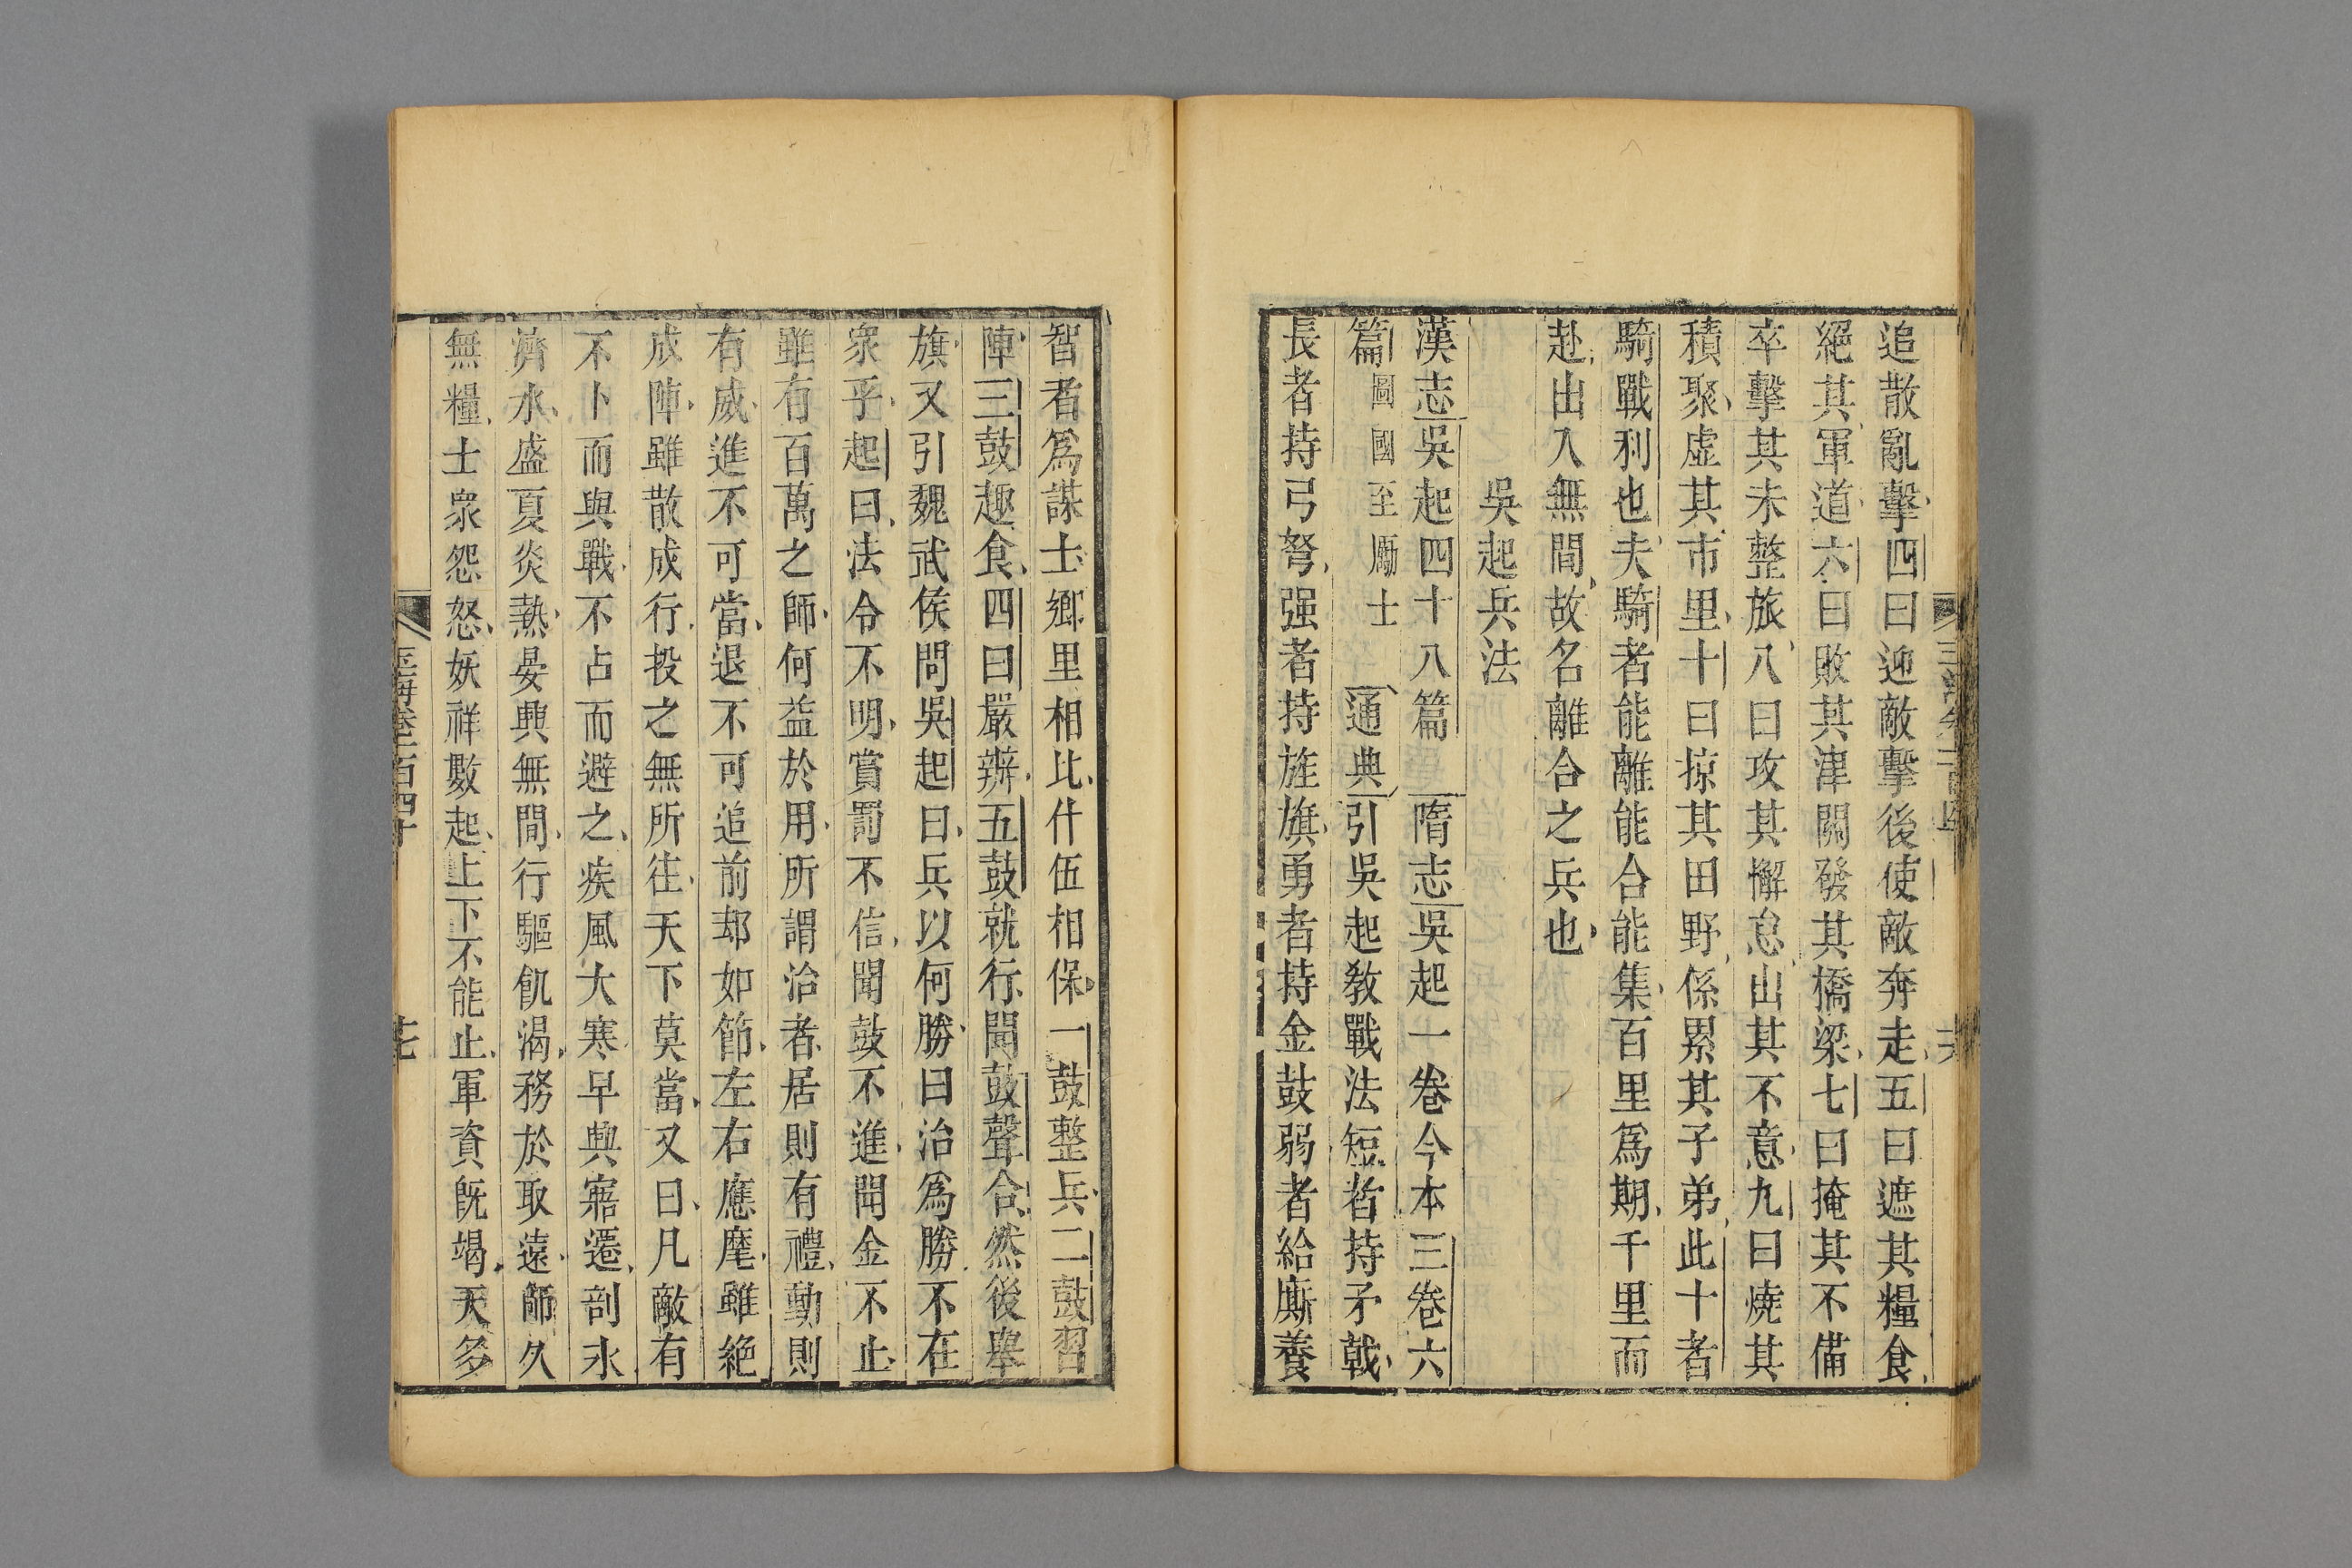 追散亂擊四曰迎敵擊後使敵奔走五曰遮其糧食
絕其軍道六曰敗其津關發其橋梁七曰掩其不備
卒擊其未整旅八曰攻其懈怠出其不意九曰燒其
積聚虛其市里十曰掠其田野係累其子弟此十者
騎戰利也夫騎者能離能合能集百里爲期千里而
赴出入無間故名離合之兵也
吳起兵法
漢志吳起四十八篇 隋志吳起一卷今本三卷六
篇圖國至勵士 通典引吳起敎戰法短者持矛戟
長者持弓弩强者持旌旗勇者持金鼓弱者給廝養
智者爲謀士鄉里相比什伍相保一鼓整兵二鼓習
陣三鼓趣食四曰嚴辨五鼓就行聞鼓聲合然後舉
旗又引魏武侯問吳起曰兵以何勝曰治爲勝不在
衆乎起曰法令不明賞罰不信聞鼓不進聞金不止
雖有百萬之師何益於用所謂治者居則有禮動則
有威進不可當退不可追前却如節左右應麾雖絕
成陣雖散成行投之無所往天下莫當又曰凡敵有
不卜而與戰不占而避之疾風大寒早興寤遷剖氷
濟水盛夏炎熱晏興無間行驅飢渴務於取遠師久
無糧士衆怨怒妖祥數起上下不能止軍資旣竭天多
玉海卷一百四十